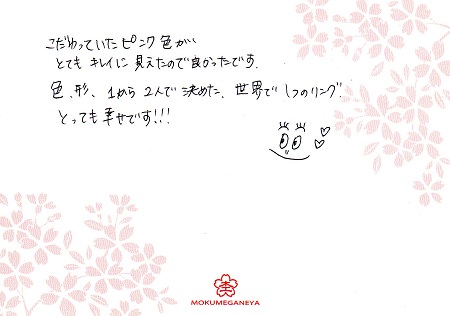 こだわっていたピンク色が、
とてもキレイに見えたので良かったです。
色、形、1から2人で決めた、世界で1つのリング。
とっても幸せです!!!
MOKUMEGANEYA